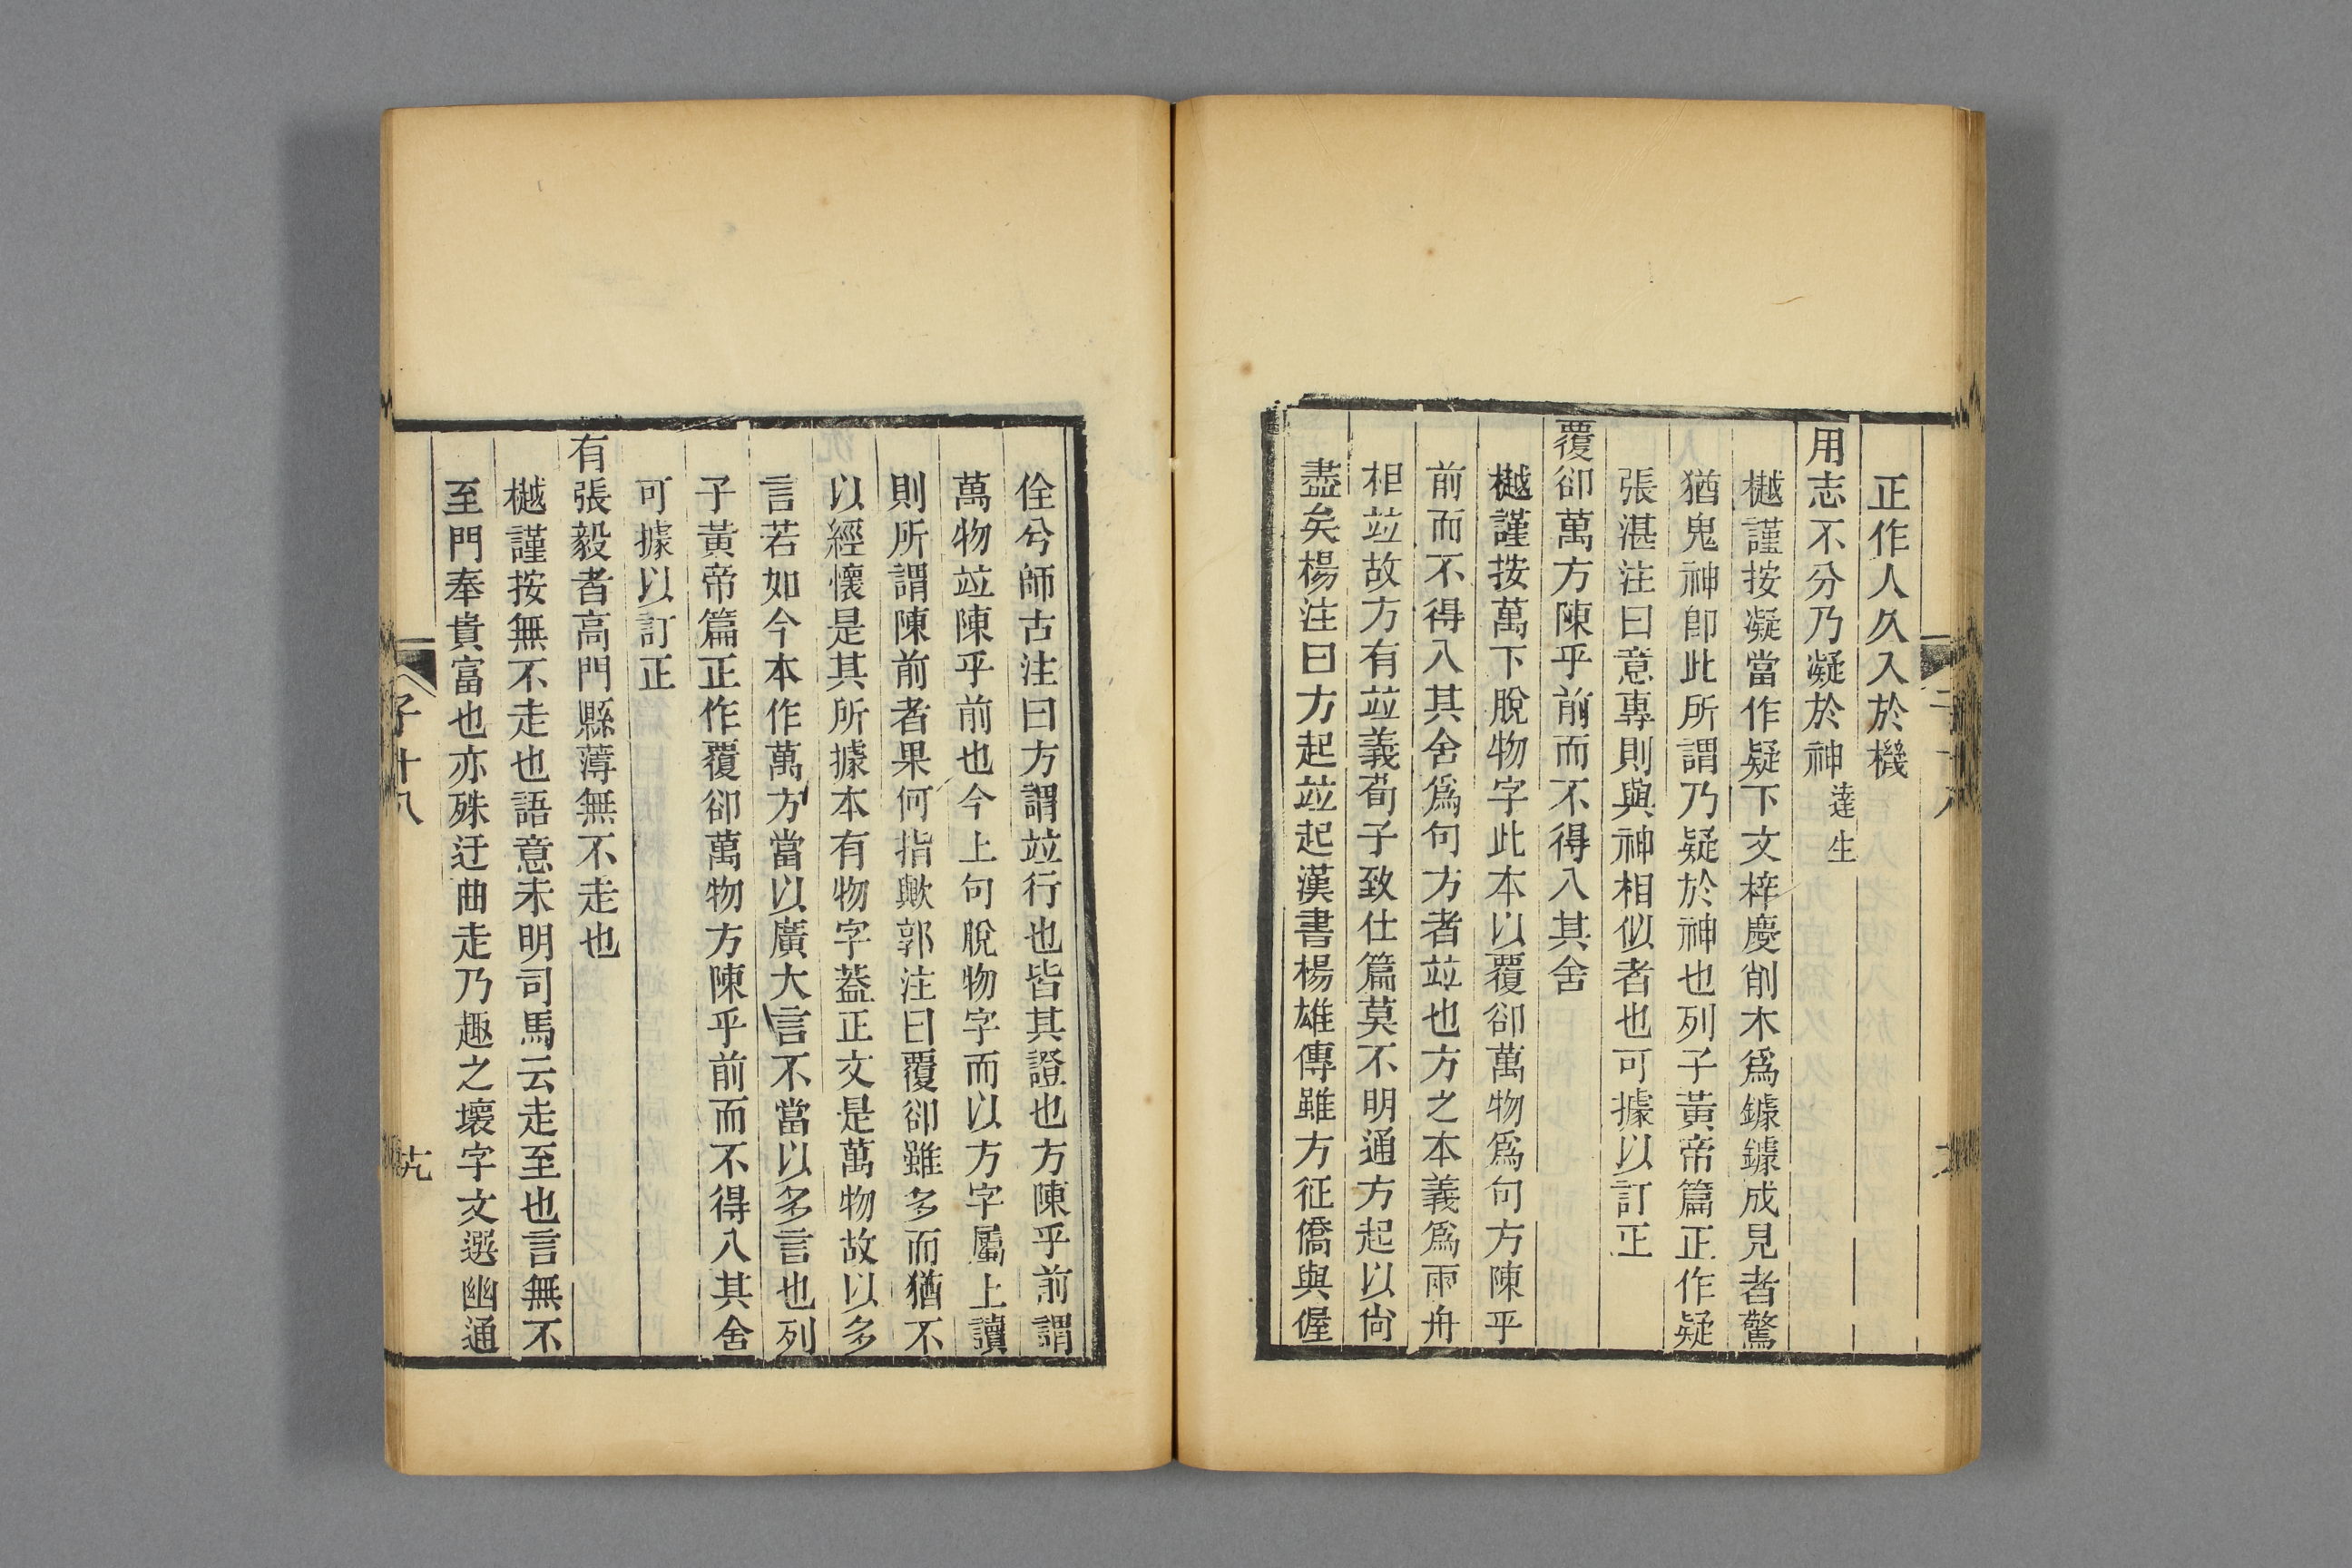 正作人久入於機
用志不分乃凝於神達生
樾謹按凝當作疑下文梓慶削木爲鐻鐻成見者驚
猶鬼神卽此所謂乃疑於神也列子黃帝篇正作疑
張湛注曰意專則與神相似者也可據以訂正
覆卻萬方陳乎前而不得入其舍
樾謹按萬下脫物字此本以覆卻萬物爲句方陳乎
前而不得入其舍爲句方者竝也方之本義爲兩舟
相竝故方有竝義荀子致仕篇莫不明通方起以尙
盡矣楊注曰方起竝起漢書楊雄傳雖方征僑與偓
佺兮師古注曰方謂竝行也皆其證也方陳乎前謂
萬物竝陳乎前也今上句脫物字而以方字屬上讀
則所謂陳前者果何指歟郭注曰覆卻雖多而猶不
以經懷是其所據本有物字葢正文是萬物故以多
言若如今本作萬方當以廣大言不當以多言也列
子黃帝篇正作覆卻萬物方陳乎前而不得入其舍
可據以訂正
有張毅者高門縣薄無不走也
樾謹按無不走也語意未明司馬云走至也言無不
至門奉貴富也亦殊迂曲走乃趣之壞字文選幽通
子十八